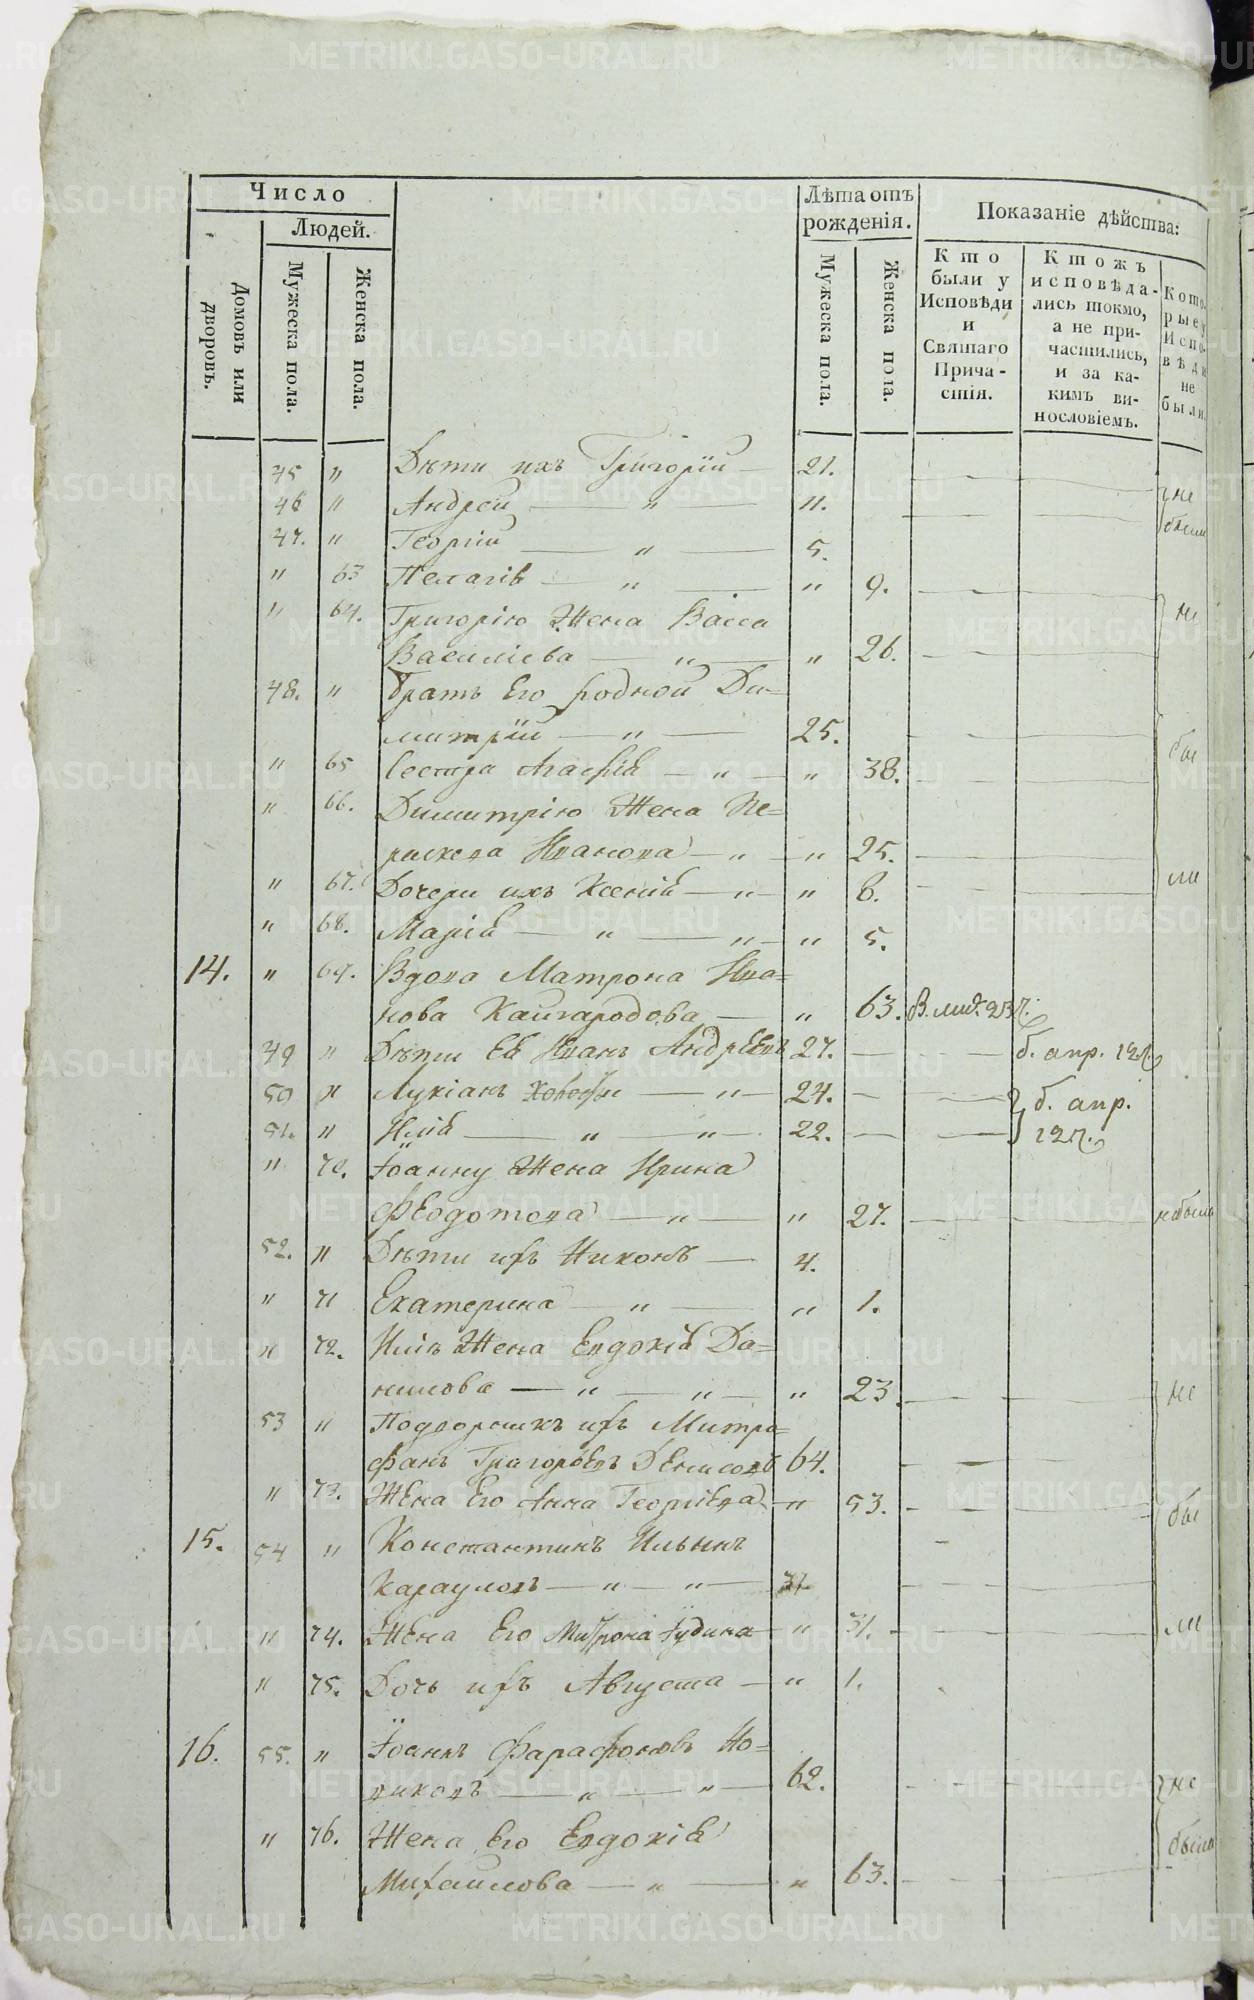 Число
Людей.
Домовъ или дворовъ.
Мужеска пола.
Женска пола.
Лѣта отъ рожденія.
Мужеска пола.
Женска пола.
Показаніе дѣйства:
Кто были у Исповѣди и Святаго Причастія.
Ктожъ исповѣдались токмо, а не причастились, и за какимъ винословіемъ.
Которые у Исповѣди не были.
45 " Дѣти ихъ Григорій — 21. не
46 " Андрей — " — 11. были
47. " Георгій — " — 5.
" 63 Пелагія — " — " 9.
" 64. Григорію Жена Васса не
Василіева — " — " 26.
48. " Братъ Его родной Ди=
митрій — " — 25. бы
" 65 Сестра Агафія — " — " 38.
" 66. Димитрію Жена Па=
Иванова — " — " 25. ли
" 67. Дочери ихъ Ксенія — " — " 8.
" 68. Марія — " — " — " 5.
14. " 69. Вдова Матрона Ива=
нова Кайгородова — " 63. В. 23
49 " Дѣти Ея Иванъ Андреевъ 27. — б. апр. 12
50 " Лукіанъ — " — 24. — б. апр.
51. " Илія — " — " — 22. — 12
" 70. Іоанну Жена Ирина
Феодотова — " — " 27. — небыла
52. " Дѣти ихъ Никонъ — 4.
" 71 Екатерина — " — " 1.
" 72. Иліи Жена Евдокія Да=
нилова — " — " — " 23. — не
53 " Подворникъ ихъ Митро=
фанъ Григорьевъ Денисовъ 64.
" 73. Жена Его Анна Георгіева — " 53. — бы
15. 54 " Константинъ Ильинъ
Карауловъ — " — " — 31
" 74. Жена Его Матрона Іудина — " 31. — ли
" 75. Дочь ихъ Августа — " 1.
16. 55. " Іоаннъ Фарафоновъ Но=
виковъ — " — " — 62. — не
" 76. Жена Его Евдокія были
Михаилова — " — " 63.
METRIKI.GASO-URAL.RU